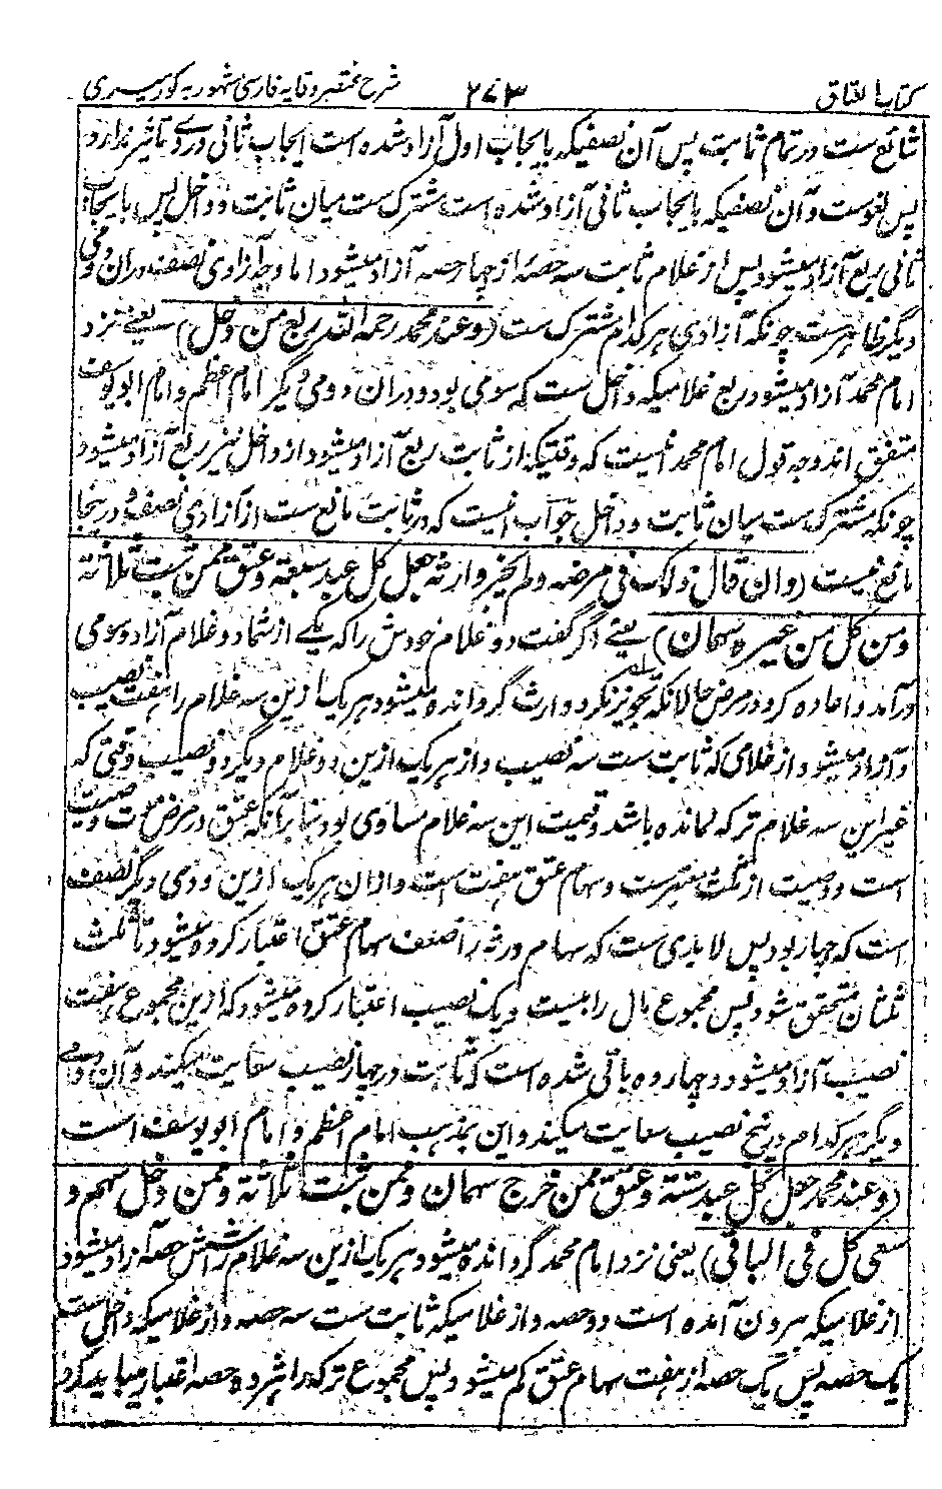 کتاب العتاق ۲۷۳ شرح مختصر وقایه فارسی مشهور به کور میری
شائع ست در تمام ثابت پس آن نصفیکه بایجاب اول آزاد شده است ایجاب ثانی در وے تاثیر ندارد
پس لغوست و آن نصفیکه بایجاب ثانی آزاد شده است مشترک ست میان ثابت و داخل پس بایجاب
ثانی ربع آزاد میشود پس از غلام ثابت سه حصه از چهار حصه آزاد میشود اما وجه آزادی نصف دران دومی
دیگر ظاهرست چونکه آزادی هر کدام مشترک ست (وعند محمد رحمه الله ربع من دخل) یعنے نزد
امام محمد آزاد میشود ربع غلامیکه داخل ست که سومی بود و دران دومی دیگر امام اعظم و امام ابویوسف
متفق اند وجه قول امام محمد اینست که وقتیکه از ثابت ربع آزاد میشود از داخل نیز ربع آزاد میشود
چونکه مشترک ست میان ثابت و داخل جواب اینست که در ثابت مانع ست از آزادی نصف و درینجا
مانع نیست (وان قال ذلک فی مرضه ولم یجز وارثه جعل کل عبد سبعة وعتق ممن ثبت ثلاثة
ومن کل من غیره سهمان) یعنے اگر گفت دو غلام خودش را که یکے از شما دو غلام آزاد و سومی
درآمد و اعاده کرد در مرض حالانکه تجویز نکرد وارث گردانده میشود هر یک ازین سه غلام را هفت نصیب
و آزاد میشود از غلامی که ثابت ست سه نصیب و از هر یک ازین دو غلام دیگر دو نصیب وقتی که
غیر این سه غلام ترکه نمانده باشد و قیمت این سه غلام مساوی بود بنا برآنکه عتق در مرض موت وصیت
است و وصیت از ثلث معتبرست و سهام عتق هفت است و ازان هر یک ازین دومی دیگر نصف
است که چهار بود پس لابدی ست که سهام ورثه را ضعف سهام عتق اعتبار کرده میشود تا ثلث
ثلثان متحقق شود پس مجموع مال را بیست و یک نصیب اعتبار کرده میشود که ازین مجموع هفت
نصیب آزاد میشود و چهارده باقی شده است که ثابت در چهار نصیب سعایت میکند و آن دومے
دیگر هر کدام در پنج نصیب سعایت میکند و این بمذهب امام اعظم و امام ابویوسف است
(وعند محمد جعل کل عبد ستة وعتق ممن خرج سهمان وممن ثبت ثلاثة وممن دخل سهم و
سعی کل فی الباقی) یعنی نزد امام محمد گردانده میشود هر یک ازین سه غلام را شش حصه آزاد میشود
از غلامیکه بیرون آمده است دو حصه و از غلامیکه ثابت ست سه حصه و از غلامیکه داخل ست
یک حصه پس یک حصه از هفت سهام عتق کم میشود پس مجموع ترکه را هژده حصه اعتبار میباید کرد